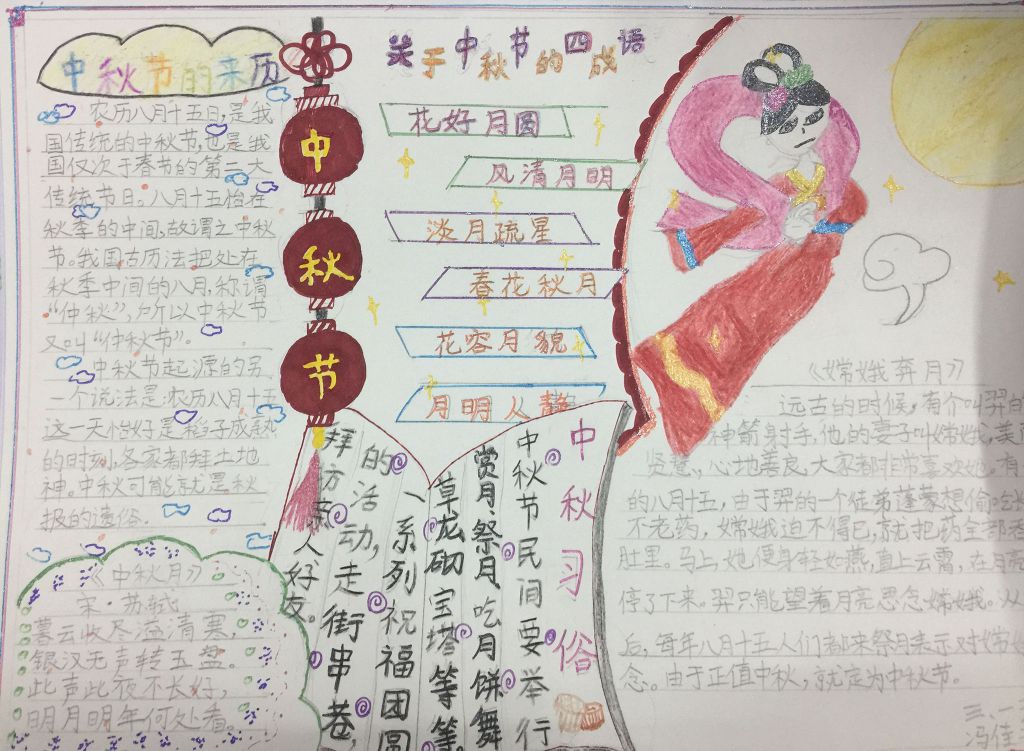 中秋节的来历
农历八月十五日,是我
国传统的中秋节,也是我
国仅次于春节的第二大
传统节日。八月十五恰在
秋季的中间,故谓之中秋
节。我国古历法把处在
秋季中间的八月,称谓
“仲秋”,所以中秋节
又叫“仲秋节”。
中秋节起源的另
一个说法是:农历八月十五
这一天恰好是稻子成熟
的时刻,各家都拜土地
神。中秋可能就是秋
报的遗俗.
《中秋月》
宋·苏轼
暮云收尽溢清寒,
银汉无声转玉盘。
此声此夜不长好,
明月明年何处看。
中
秋
节
关于中秋节的四成语
花好月圆
风清月明
淡月疏星
春花秋月
花容月貌
月明人静
中秋习俗
中秋节民间要举行
赏月、祭月、吃月饼舞
草龙砌宝塔等等
一系列祝福团圆
的活动,走街串巷,
拜访亲人好友。
《嫦娥奔月》
远古的时候,有个叫羿的
神箭射手,他的妻子叫嫦娥,美
贤惠,心地善良,大家都非常喜欢她。有
的八月十五,由于羿的一个徒弟蓬蒙想偷吃长
不老药,嫦娥迫不得已,就把药全部吞
肚里。马上,她便身轻如燕,直上云霄,在月亮
停了下来。羿只能望着月亮思念嫦娥。从
后,每年八月十五人们都来祭月表示对嫦娥
念。由于正值中秋,就定为中秋节。
三、一
冯佳